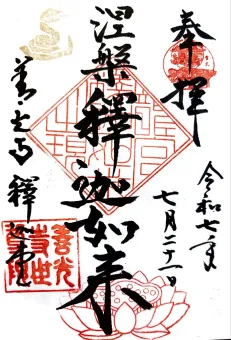 奉拝
令和七年
七月二十一日
涅槃釋迦如来
善光寺 釋迦堂
善光
寺世
尊院